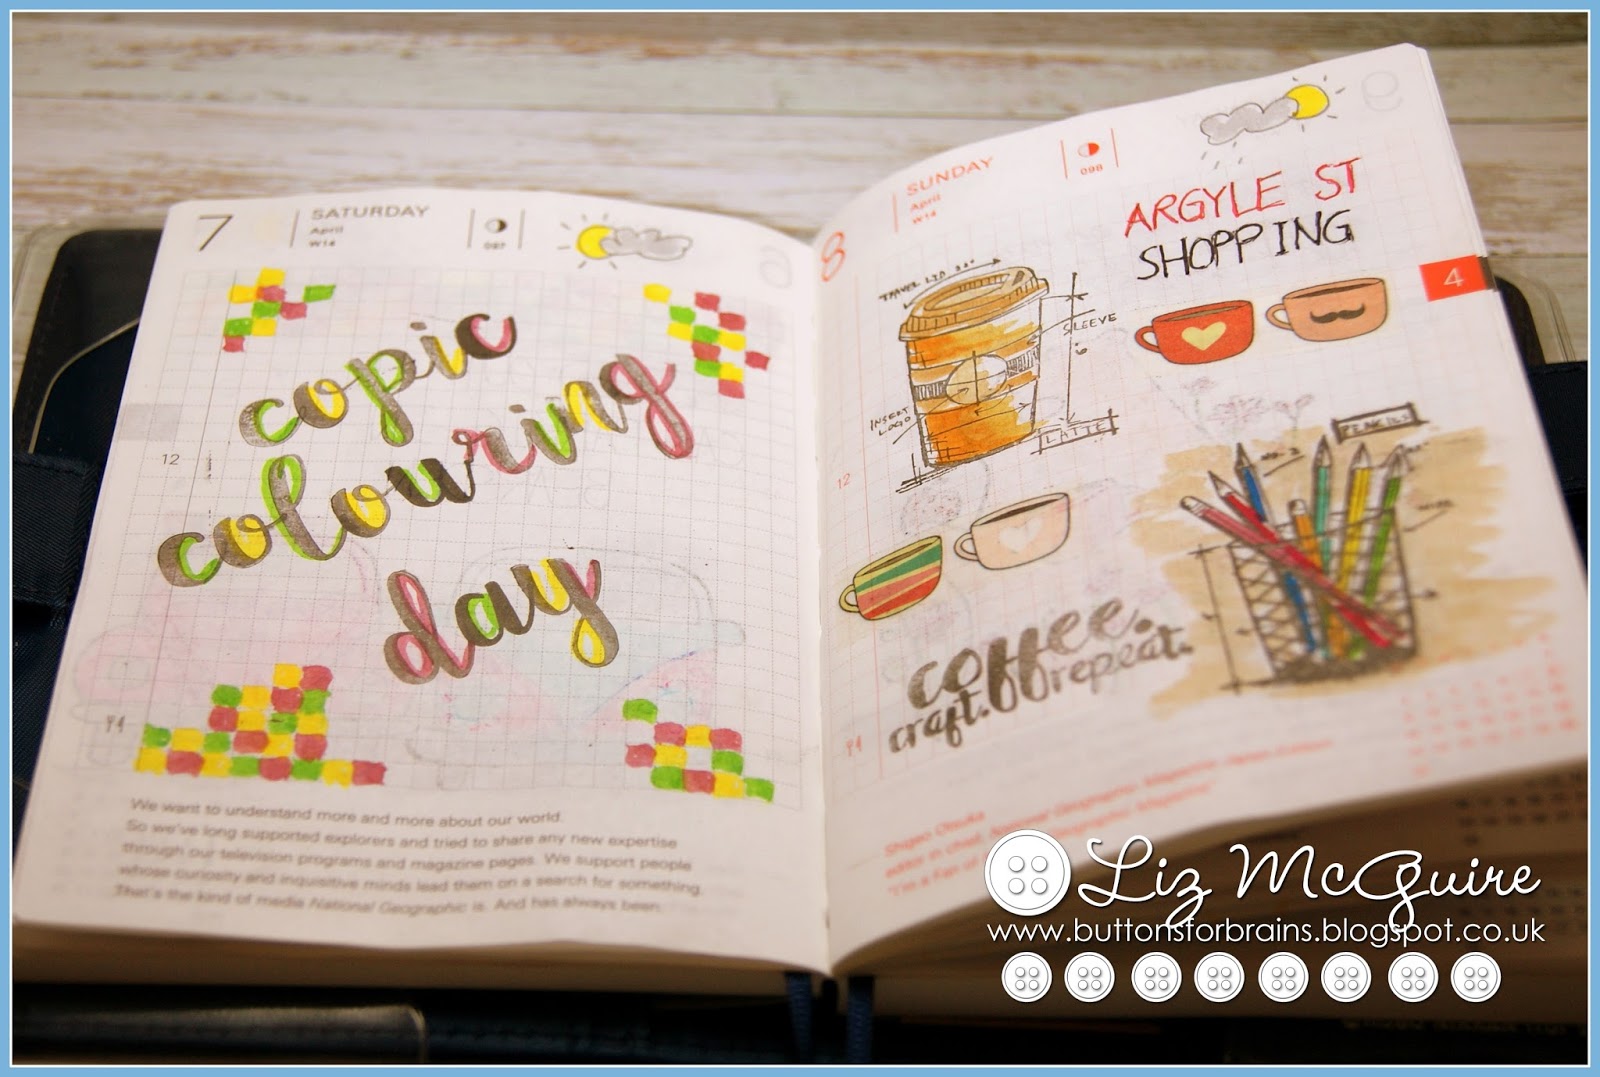 7
SATURDAY
April
W14
097
copic
colouring
day
12
We want to understand more and more about our world.
So we've long supported explorers and tried to share any new expertise
through our television programs and magazine pages. We support people
whose curiosity and inquisitive minds lead them on a search for something.
That's the kind of media National Geographic is. And has always been.
8
SUNDAY
April
W14
098
ARGYLE ST
SHOPPING
4
TRAVEL LID
SLEEVE
INSERT
LOGO
LATTE
12
PENCILS
coffee.
craft. repeat.
Shigeo Otsuka
editor in chief, National Geographic Magazine
Liz McGuire
www.buttonsforbrains.blogspot.co.uk